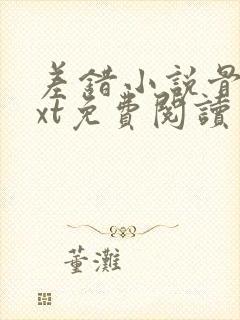 差錯小說骨
xt免費閱讀
董灘